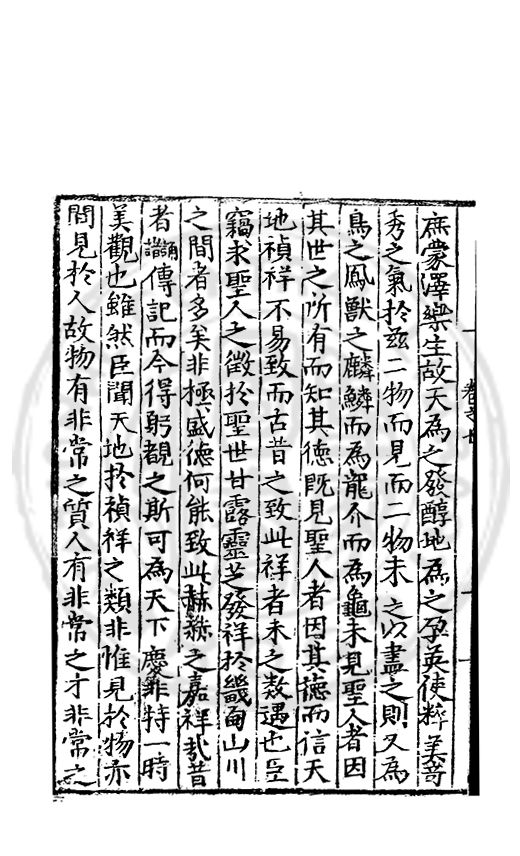 庶蒙澤樂生故天為之發醇地為之孕英使粹美竒
秀之氣扵兹二物而見而二物未之以盡之則又為
鳥之鳳獸之麟鱗而為龍介而為龜未見聖人者因
其世之所有而知其德既見聖人者因其德而信天
地禎祥不易致而古昔之致此祥者未之数遇也臣
竊求聖人之徵扵聖世甘露靈芝發祥扵畿甸山川
之間者多矣非極盛德何能致此赫赫之嘉祥哉昔
者誦諸傳記而今得躬覩之斯可為天下慶非特一時
美觀也雖然臣聞天地扵禎祥之類非惟見扵物亦
間見扵人故物有非常之質人有非常之才非常之
卷之廿